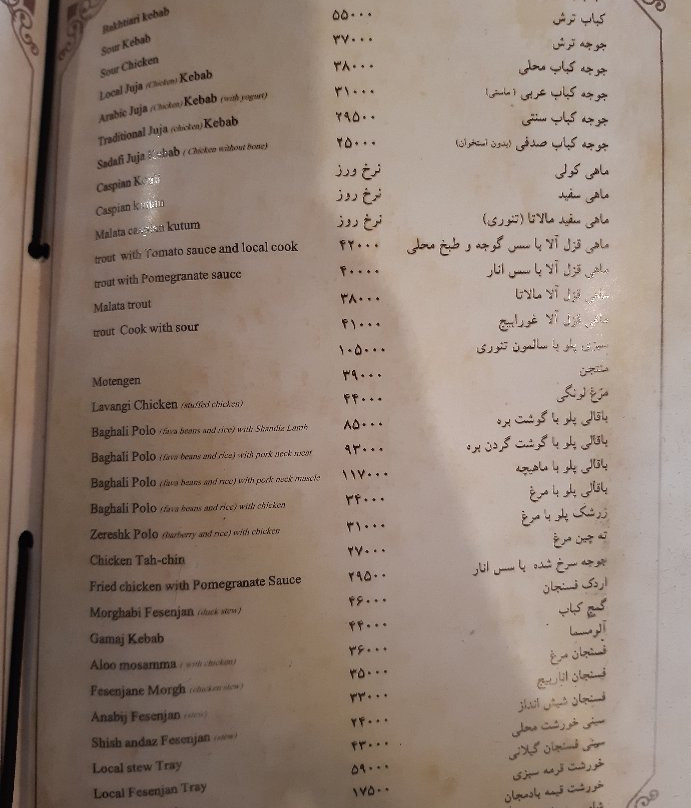 Bakhtiari kebab
Sour Kebab ۵۵۰۰۰ کباب ترش
Sour Chicken ۳۷۰۰۰ جوجه ترش
Local Juja (Chicken) Kebab ۳۸۰۰۰ جوجه کباب محلی
Arabic Juja (Chicken) Kebab (with yogurt) ۳۱۰۰۰ جوجه کباب عربی (ماستی)
Traditional Juja (chicken) Kebab ۲۹۵۰۰ جوجه کباب سنتی
Sadafi Juja Kebab (Chicken without bone) ۲۵۰۰۰ جوجه کباب صدفی (بدون استخوان)
Caspian نرخ ورز ماهی کولی
Caspian kutum نرخ روز ماهی سفید
Malata caspian kutum نرخ روز ماهی سفید مالاتا (تنوری)
trout with Tomato sauce and local cook ۴۲۰۰۰ ماهی قزل آلا با سس گوجه و طبخ محلی
trout with Pomegranate sauce ۴۰۰۰۰ ماهی قزل آلا با سس انار
Malata trout ۳۸۰۰۰ ماهی قزل آلا مالاتا
trout Cook with sour ۴۱۰۰۰ ماهی قزل آلا غورابیج
۱۰۵۰۰۰ سبزی پلو با سالمون تنوری
Motengen ۳۹۰۰۰ متنجن
Lavangi Chicken (stuffed chicken) ۴۴۰۰۰ مرغ لونگی
Baghali Polo (fava beans and rice) with Shanliz Lamb ۸۵۰۰۰ باقالی پلو با گوشت بره
Baghali Polo (fava beans and rice) with pork neck meat ۹۳۰۰۰ باقالی پلو با گوشت گردن بره
Baghali Polo (fava beans and rice) with pork neck muscle ۱۱۷۰۰۰ باقالی پلو با ماهیچه
Baghali Polo (fava beans and rice) with chicken ۳۴۰۰۰ باقالی پلو با مرغ
Zereshk Polo (barberry and rice) with chicken ۳۱۰۰۰ زرشک پلو با مرغ
Chicken Tah-chin ۲۷۰۰۰ ته چین مرغ
Fried chicken with Pomegranate Sauce ۲۹۵۰۰ جوجه سرخ شده با سس انار
Morghabi Fesenjan (duck stew) ۴۶۰۰۰ اردک فسنجان
Gamaj Kebab ۴۴۰۰۰ گمج کباب
Aloo mosamma (with chicken) ۳۶۰۰۰ آلومسما
Fesenjane Morgh (chicken stew) ۳۵۰۰۰ فسنجان مرغ
Anabij Fesenjan (stew) ۳۳۰۰۰ فسنجان انارییج
Shish andaz Fesenjan (stew) ۲۴۰۰۰ فسنجان شیش انداز
Local stew Tray ۴۳۰۰۰ سینی خورشت محلی
Local Fesenjan Tray ۵۹۰۰۰ سینی فسنجان گیلانی
۱۷۵۰۰ خورشت قرمه سبزی
خورشت قیمه بادمجان